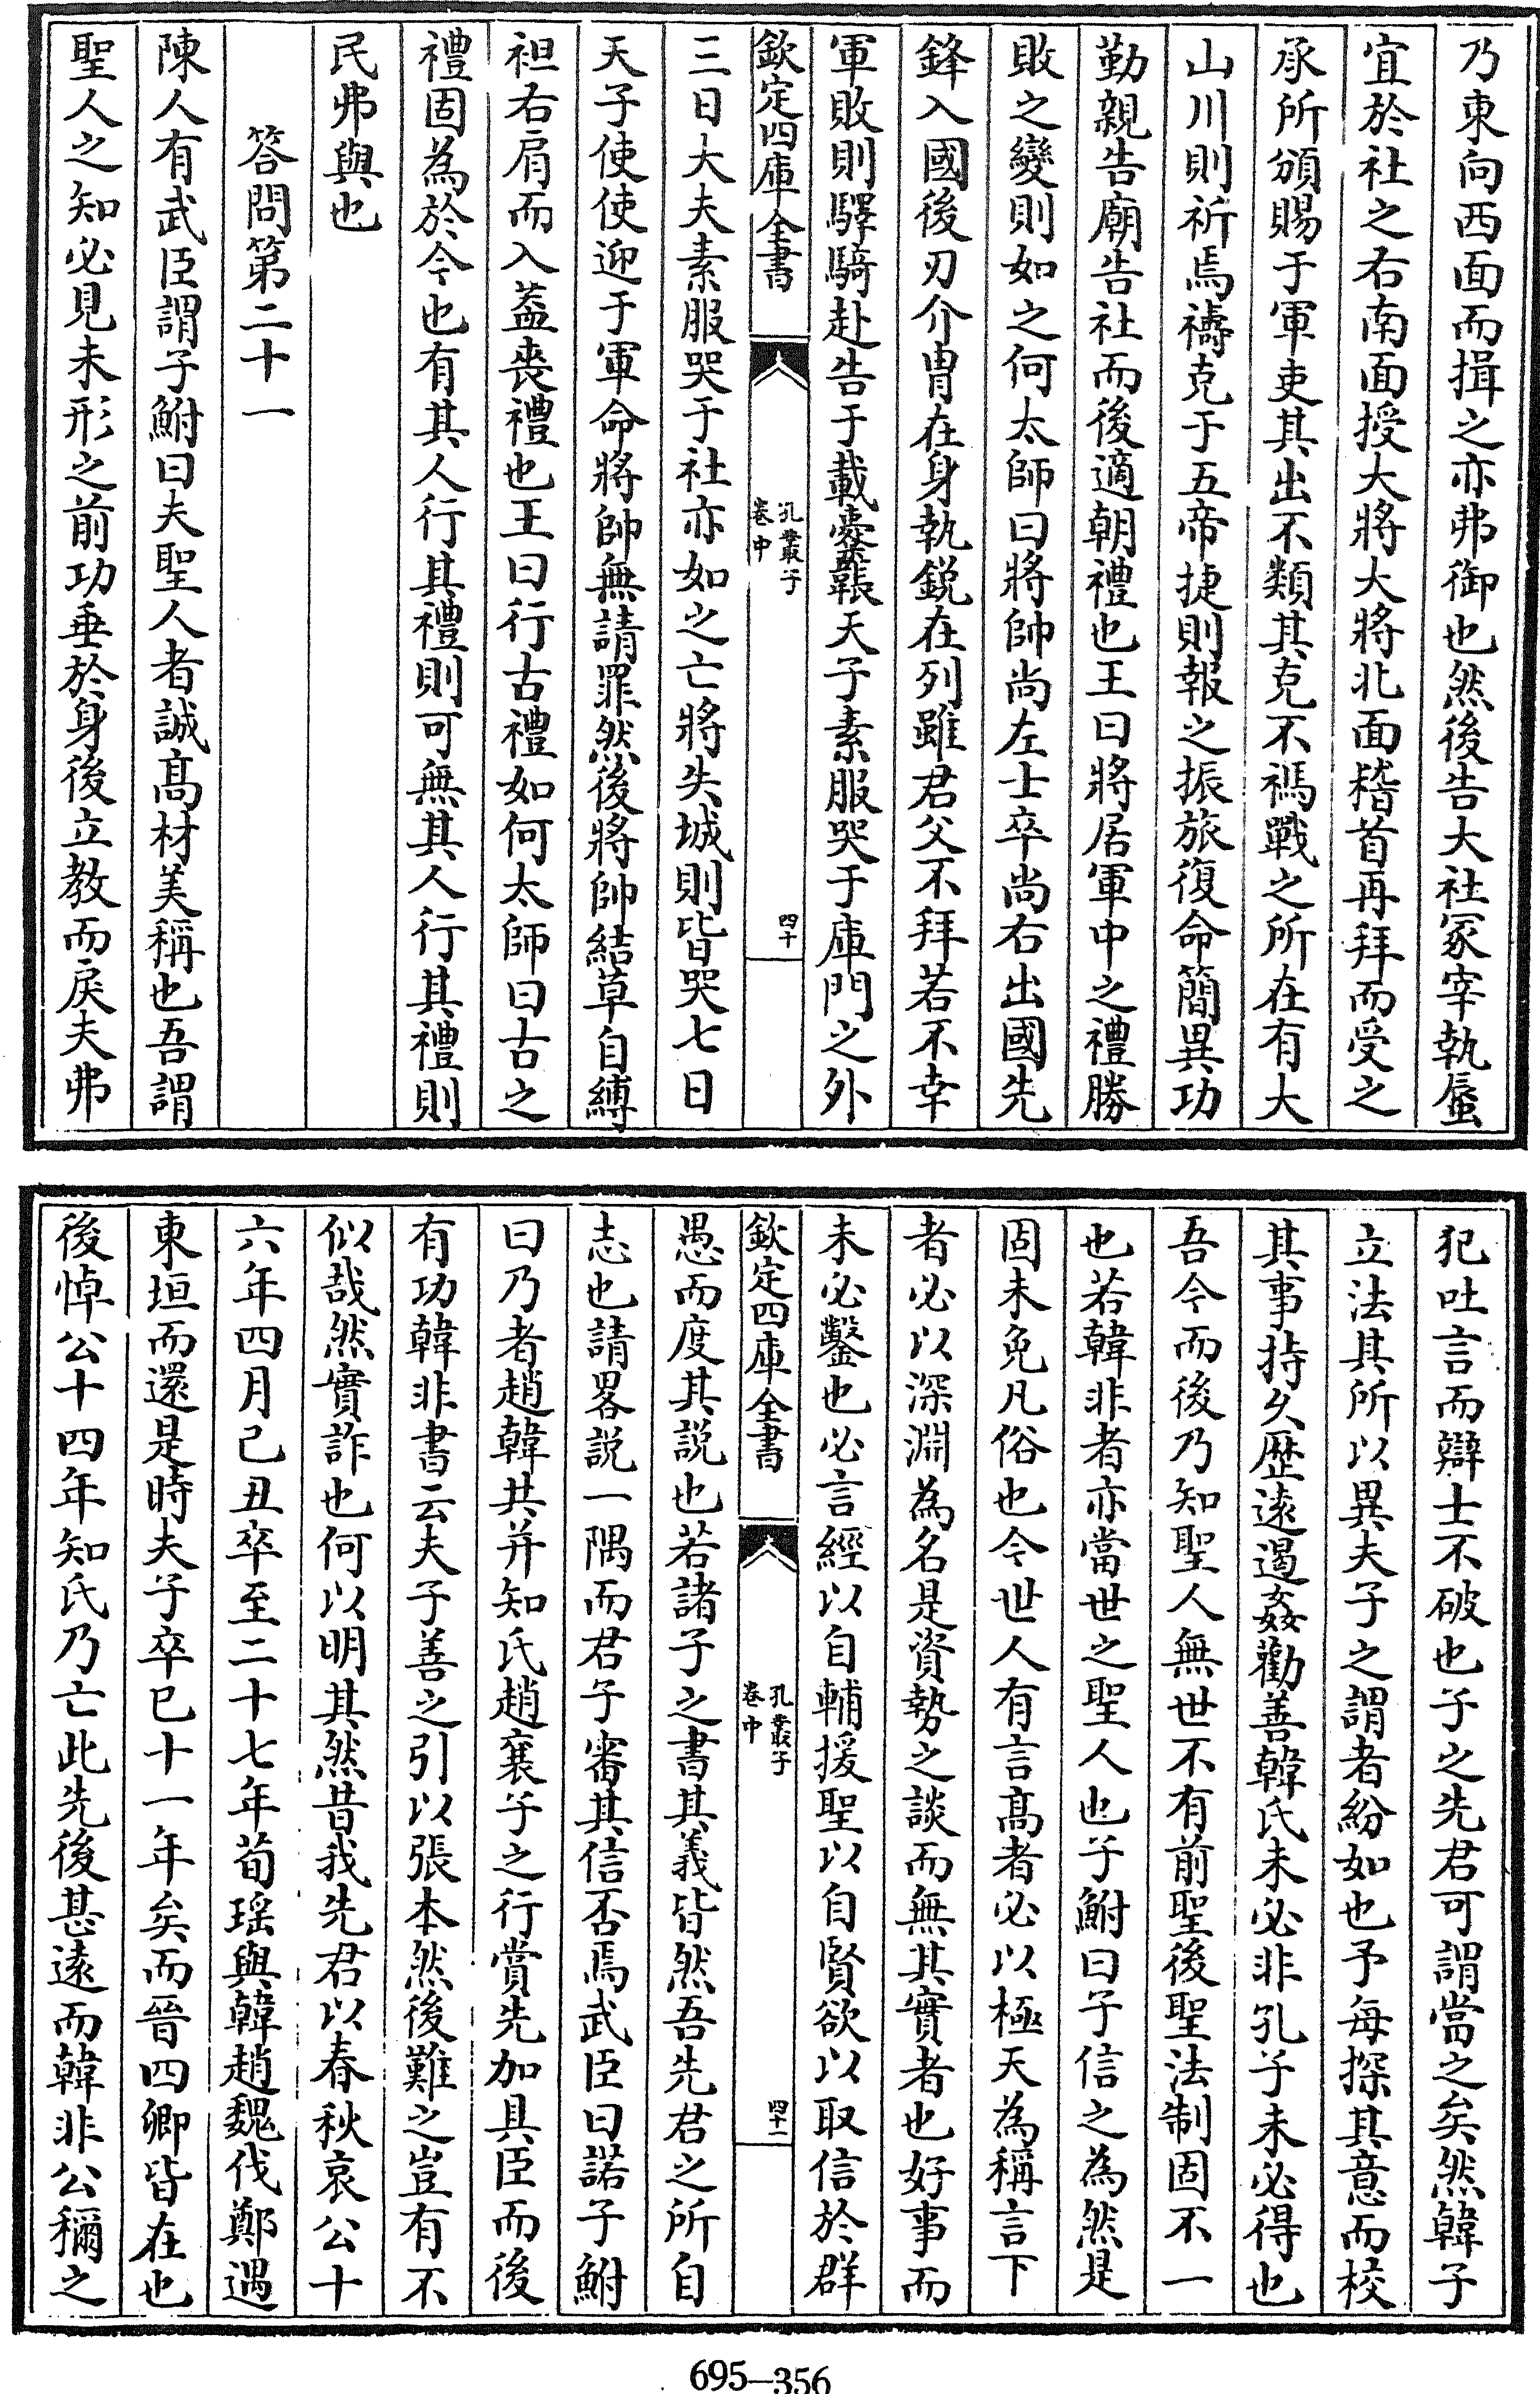 乃東向西面而揖之亦弗御也然後告大社冢宰執蜃
宜於社之右南面授大將大將北面稽首再拜而受之
承所頒賜于軍吏其出不類其克不禡戰之所在有大
山川則祈焉禱克于五帝捷則報之振旅復命簡異功
勤親告廟告社而後適朝禮也王曰將居軍中之禮勝
敗之變則如之何太師曰將帥尚左士卒尚右出國先
鋒入國後刃介冑在身執鋭在列雖君父不拜若不幸
軍敗則驛騎赴告于載櫜韔天子素服哭于庫門之外
欽定四庫全書
孔叢子
卷中
四十
三日大夫素服哭于社亦如之亡將失城則皆哭七日
天子使使迎于軍命將帥無請罪然後將帥結草自縛
袒右肩而入葢喪禮也王曰行古禮如何太師曰古之
禮固為於今也有其人行其禮則可無其人行其禮則
民弗與也
答問第二十一
陳人有武臣謂子鮒曰夫聖人者誠髙材美稱也吾謂
聖人之知必見未形之前功垂於身後立教而戾夫弗
犯吐言而辯士不破也子之先君可謂當之矣然韓子
立法其所以異夫子之謂者紛如也予每探其意而校
其事持久歴逺遏姦勸善韓氏未必非孔子未必得也
吾今而後乃知聖人無世不有前聖後聖法制固不一
也若韓非者亦當世之聖人也子鮒曰子信之為然是
固未免凡俗也今世人有言髙者必以極天為稱言下
者必以深淵為名是資勢之談而無其實者也好事而
未必鑿也必言經以自輔援聖以自賢欲以取信於群
欽定四庫全書
孔叢子
卷中
四十一
愚而度其説也若諸子之書其義皆然吾先君之所自
志也請畧説一隅而君子審其信否焉武臣曰諾子鮒
曰乃者趙韓共并知氏趙襄子之行賞先加具臣而後
有功韓非書云夫子善之引以張本然後難之豈有不
似哉然實詐也何以明其然昔我先君以春秋哀公十
六年四月己丑卒至二十七年荀瑶與韓趙魏伐鄭遇
東垣而還是時夫子卒已十一年矣而晉四卿皆在也
後悼公十四年知氏乃亡此先後甚逺而韓非公稱之
695—356